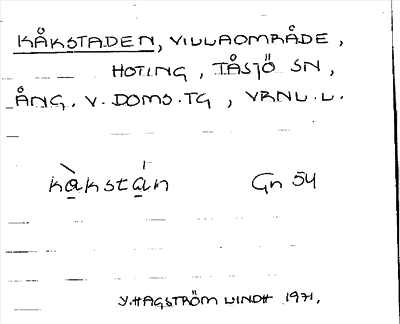 KÅKSTADEN, VILLAOMRÅDE,
HOTING, TÅSJÖ SN,
ÅNG. V. DOMS. TG, VRNL. L.
kàkstán Gn 54
Y. HAGSTRÖM LINDH 1971,